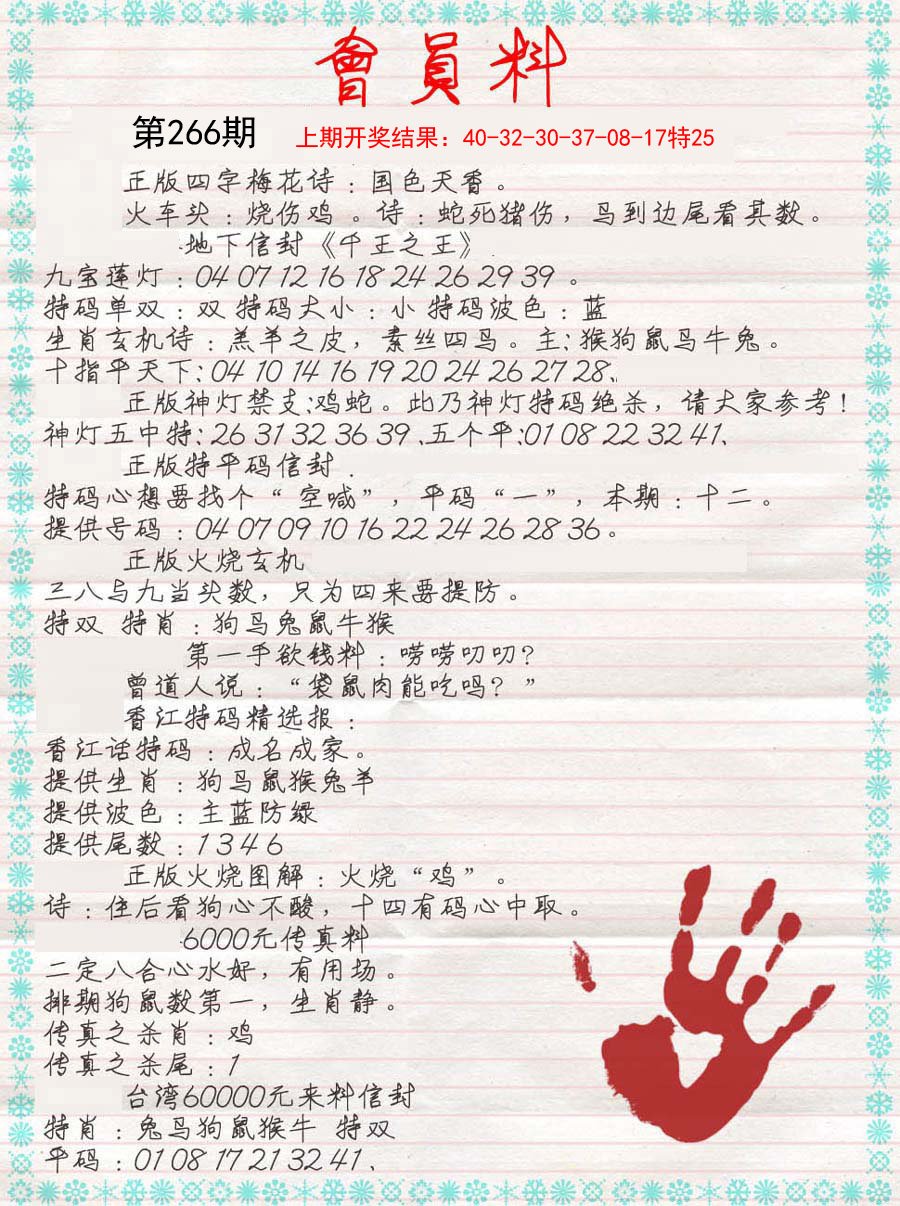 會員料
第266期 上期开奖结果：40-32-30-37-08-17特25
正版四字梅花诗：国色天香。
火车头：烧伤鸡。诗：蛇死猪伤，鸟到边尾看其数。
地下信封《千王之王》
九宝莲灯：04 07 12 16 18 24 26 29 39 。
特码单双：双 特码大小：小 特码波色：蓝
生肖玄机诗：羔羊之皮，素丝四鸟。主：猴狗鼠鸟牛兔。
十指平天下：04 10 14 16 19 20 24 26 27 28、
正版神灯禁支：鸡蛇。此乃神灯特码绝杀，请大家参考！
神灯五中特：26 31 32 36 39 、五个平：01 08 22 32 41、
正版特平码信封 .
特码心想要找个“空喊”，平码“一”，本期：十二。
提供号码：04 07 09 10 16 22 24 26 28 36。
正版火烧玄机
三八与九当头数，只为四来要提防。
特双 特肖：狗鸟兔鼠牛猴
第一手欲钱料：唠唠叨叨？
曾道人说：“袋鼠肉能吃吗？”
香江特码精选报：
香江话特码：成名成家。
提供生肖：狗鸟鼠猴兔羊
提供波色：主蓝防绿
提供尾数：1 3 4 6
正版火烧图解：火烧“鸡”。
诗：住后看狗心不酸，十四有码心中取。
6000元传真料
二定八合心水好，有用场。
排期狗鼠数第一，生肖静。
传真之杀肖：鸡
传真之杀尾：1
台湾60000元来料信封
特肖：兔鸟狗鼠猴牛 特双
平码：01 08 17 21 32 41、